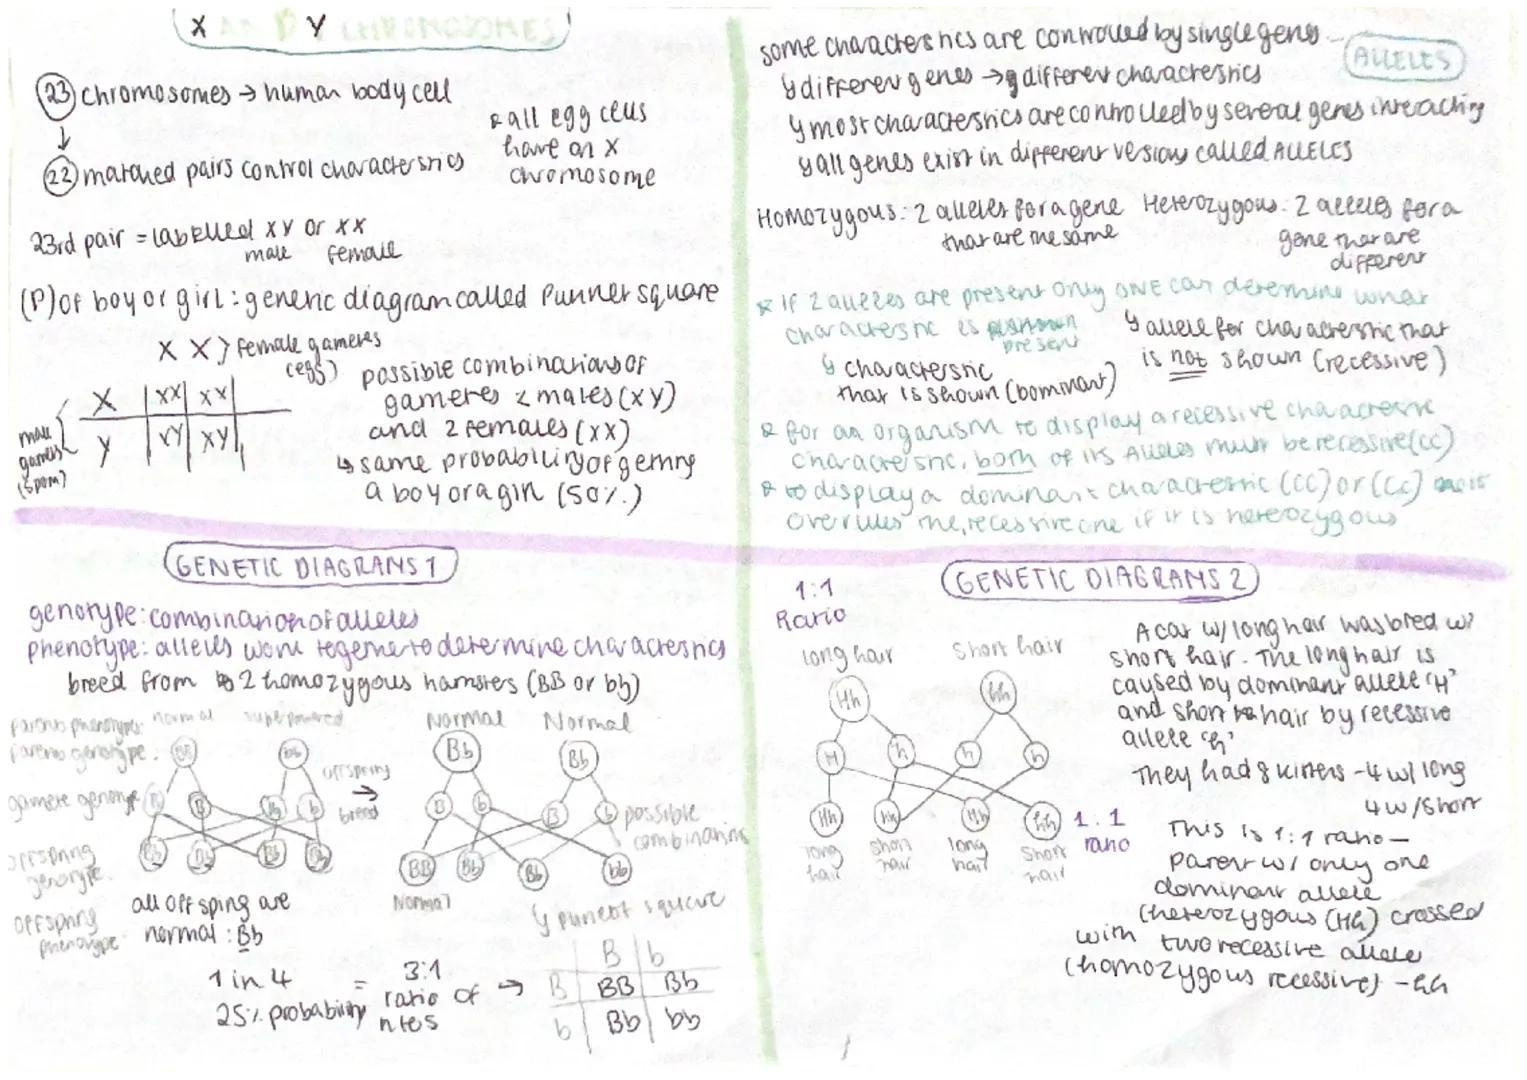 X AND Y CHROMOSOMES
23 chromosomes → human body cell
↓
22 matched pairs control characteristics
* all egg cells
have an X
chromosome
23rd pair = labelled XY or XX
male female
(P) of boy or girl: genetic diagram called Punnet square
X X } female gametes
(egg)
X XX XY
Y XY XY
male
gametes
(sperm)
possible combinations of
gametes 2 males (XY)
and 2 females (XX)
↳ same probability of getting
a boy or a girl (50%)
ALLELES
some characteristics are controlled by single genes
↳ different genes → different characteristics
↳ most characteristics are controlled by several genes interacting
↳ all genes exist in different versions called ALLELES
Homozygous: 2 alleles for a gene
that are the same
Heterozygous: 2 alleles for a
gene that are
different
* if 2 alleles are present only ONE can determine what
characteristic is present
↳ characteristic
that is shown (Dominant)
↳ allele for characteristic that
is not shown (recessive)
* for an organism to display a recessive characteristic
characteristic, both of its Alleles must be recessive (cc)
* to display a dominant characteristic (CC) or (Cc) it
overrules the recessive one if it is heterozygous
GENETIC DIAGRAMS 1
genotype: combination of alleles
phenotype: alleles work together to determine characteristics
breed from 2 homozygous hamsters (BB or bb)
parents phenotype: normal superpowered
parents genotype: BB bb
gamete genotype B B b b
offspring
genotype Bb Bb Bb Bb
offspring
phenotype
all offspring are
normal: Bb
offspring
→
breed
Normal Normal
Bb Bb
B b B b
possible
combinations
BB Bb Bb bb
Normal
↳ punnet square
B b
B BB Bb
b Bb bb
1 in 4
25% probability
=
3:1
ratio of →
GENETIC DIAGRAMS 2
1:1
Ratio
long hair short hair
Hh hh
H h h h
Hh hh Hh hh
long
hair
short
hair
long
hair
short
hair
1:1
ratio
A cat w/ long hair was bred w/
short hair. The long hair is
caused by dominant allele 'H'
and short hair by recessive
allele 'h'
They had 8 kittens - 4 w/ long
4 w/ short
This is 1:1 ratio -
parent w/ only one
dominant allele
(heterozygous (Hh)) crossed
with two recessive allele
(homozygous recessive) - hh